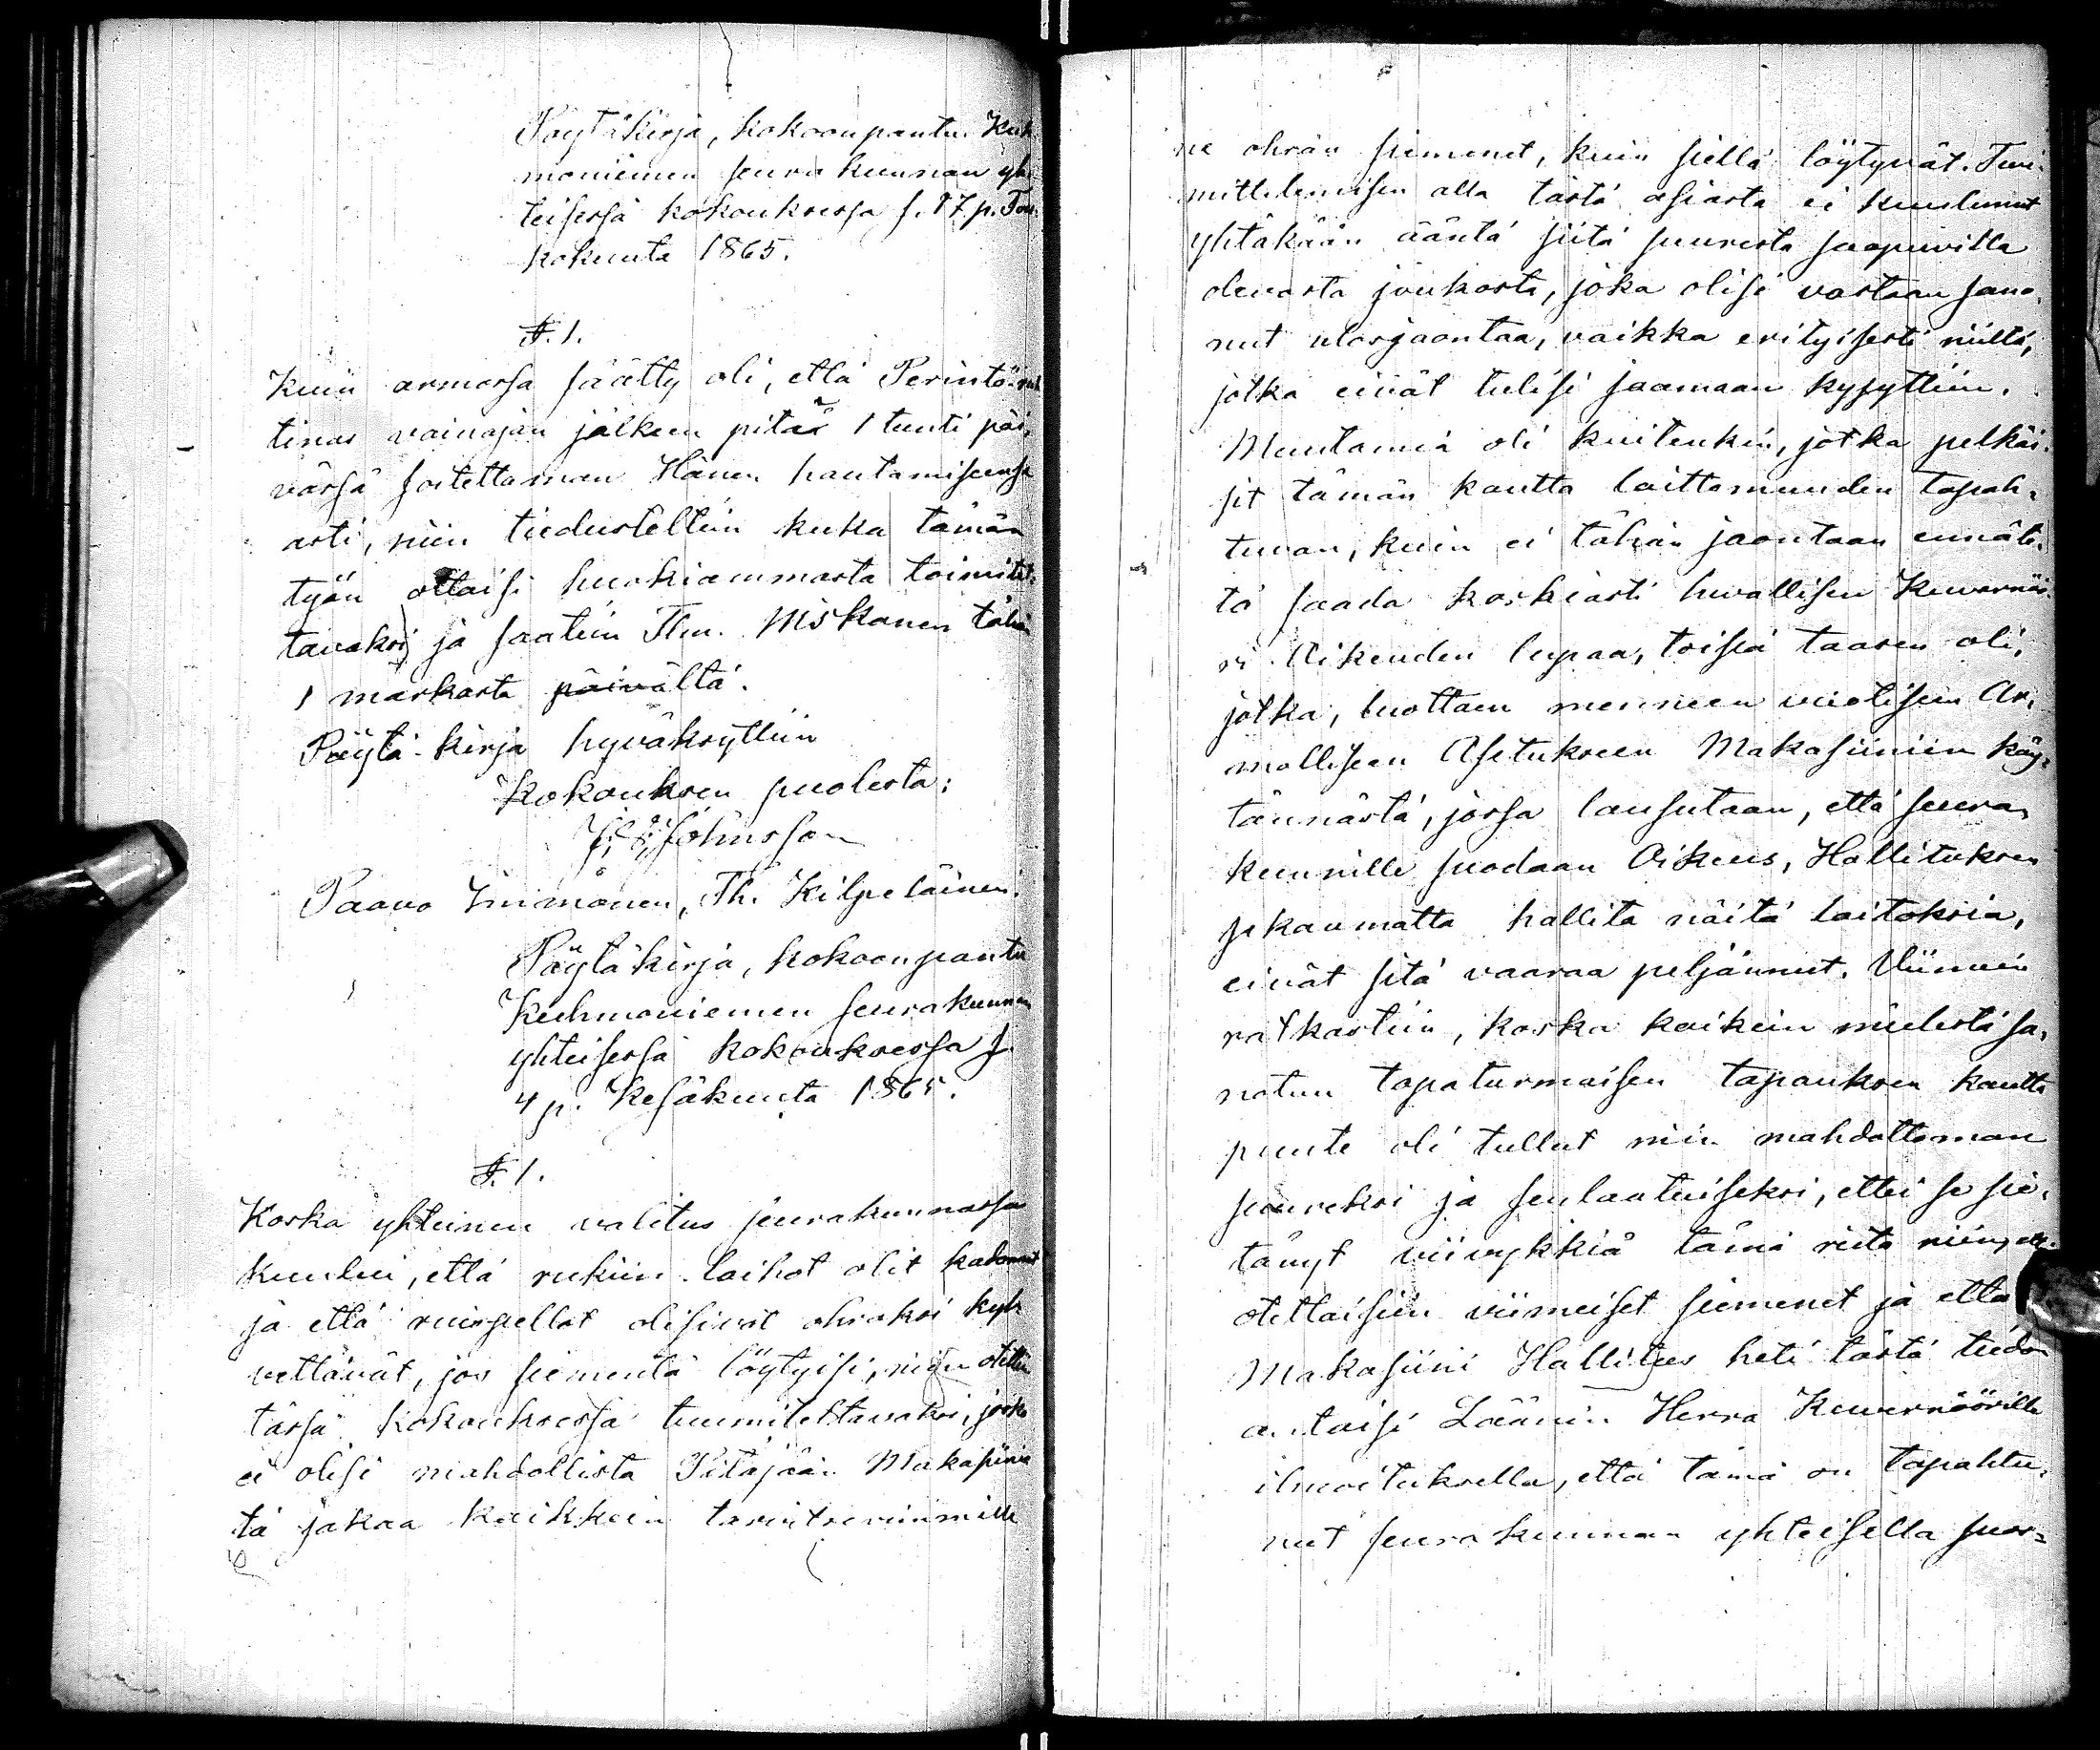 Pöytäkirja, kokoonpantu Kuh
moniemen seurakunnan yh-
teisessä kokouksessa s. 17 p. Tou-
kokuuta 1865.
§. 1.
Kuin armossa säätty oli, että Perintöruh
tinas vainajan jälkeen pitää 1 tunti päi-
vässä soitettaman Hänen hautamiseensa
asti, niin tiedusteltiin kuka tämän
työn ottaisi huokiammasta toimitet-
tavaksi, ja saatiin Tlm. Miskanen tähän
1 markasta päivältä.
Pöytä-kirja hyväksyttiin
Kokouksen puolesta:
Johnsson
Paavo Immonen, Th. Kilpeläinen.
Pöytäkirja, kokoonpantu
Kuhmoniemen seurakunnan
yhteisessä kokouksessa s.
4 p. Kesäkuuta 1865.
§. 1.
Koska yhteinen valitus seurakunnassa
kuului, että rukiin laihot olit kadonnut
ja että ruispellot olisivat ohraksi kyl-
vettävät, jos siementä löytyisi, niin otettiin
tässä kokouksessa tuumiteltavaksi, josko
ei olisi mahdollista Pitäjään Makasiinis
tä jakaa kaikkein tarvitsevimmille
ne ohrän siemenet, kuin siellä löytyvät. Tuu-
mittelemisen alla tästä asiasta ei kuulunut
yhtäkään ääntä siitä suuresta saapuvilla
olevasta joukosta, joka olisi vastaan sano-
nut ulosjaontaa, vaikka erityisesti niiltä,
jotka eivät tulisi saamaan kysyttiin.
Muutamia oli kuitenkin, jotka pelkäi-
sit tämän kautta laittomuuden tapah-
tuvan, kuin ei tähän jaontaan ennäte-
tä saada korkiasti luvallisen Kuvernöö-
ri Oikeuden lupaa, toisia taasen oli,
jotka, luottaen menneen vuotiseen Ar-
molliseen Asetukseen Makasiinien käy-
tännästä, jossa lausutaan, että seura-
kunnille suodaan Oikeus, Hallituksen
sekaumatta hallita näitä laitoksia,
eivät sitä vaaraa peljännut. Viimein
ratkastiin, koska kaikein mielestä sa-
notun tapaturmaisen tapauksen kautta
puute oli tullut niin mahdottoman
suureksi ja senlaatuiseksi, ettei se sie-
tänyt viivykkiä tämä riita niin, että
otettaisiin viimeiset siemenet ja että
Makasiini Hallitus heti tästä tiedon
antaisi Läänin Herra Kuvernöörille
ilmoituksella, että tämä on tapahtu-
nut seurakunnan yhteisellä suos-